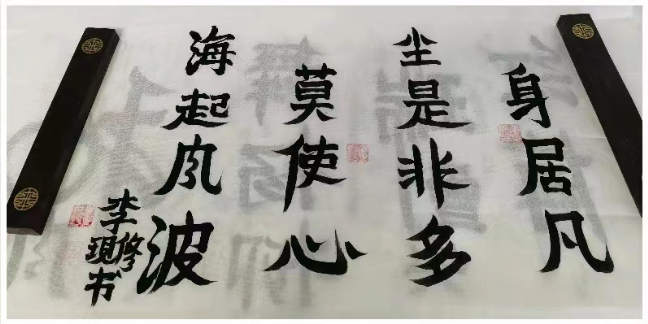 身居凡
尘是非多
莫使心
海起风波
李修現书